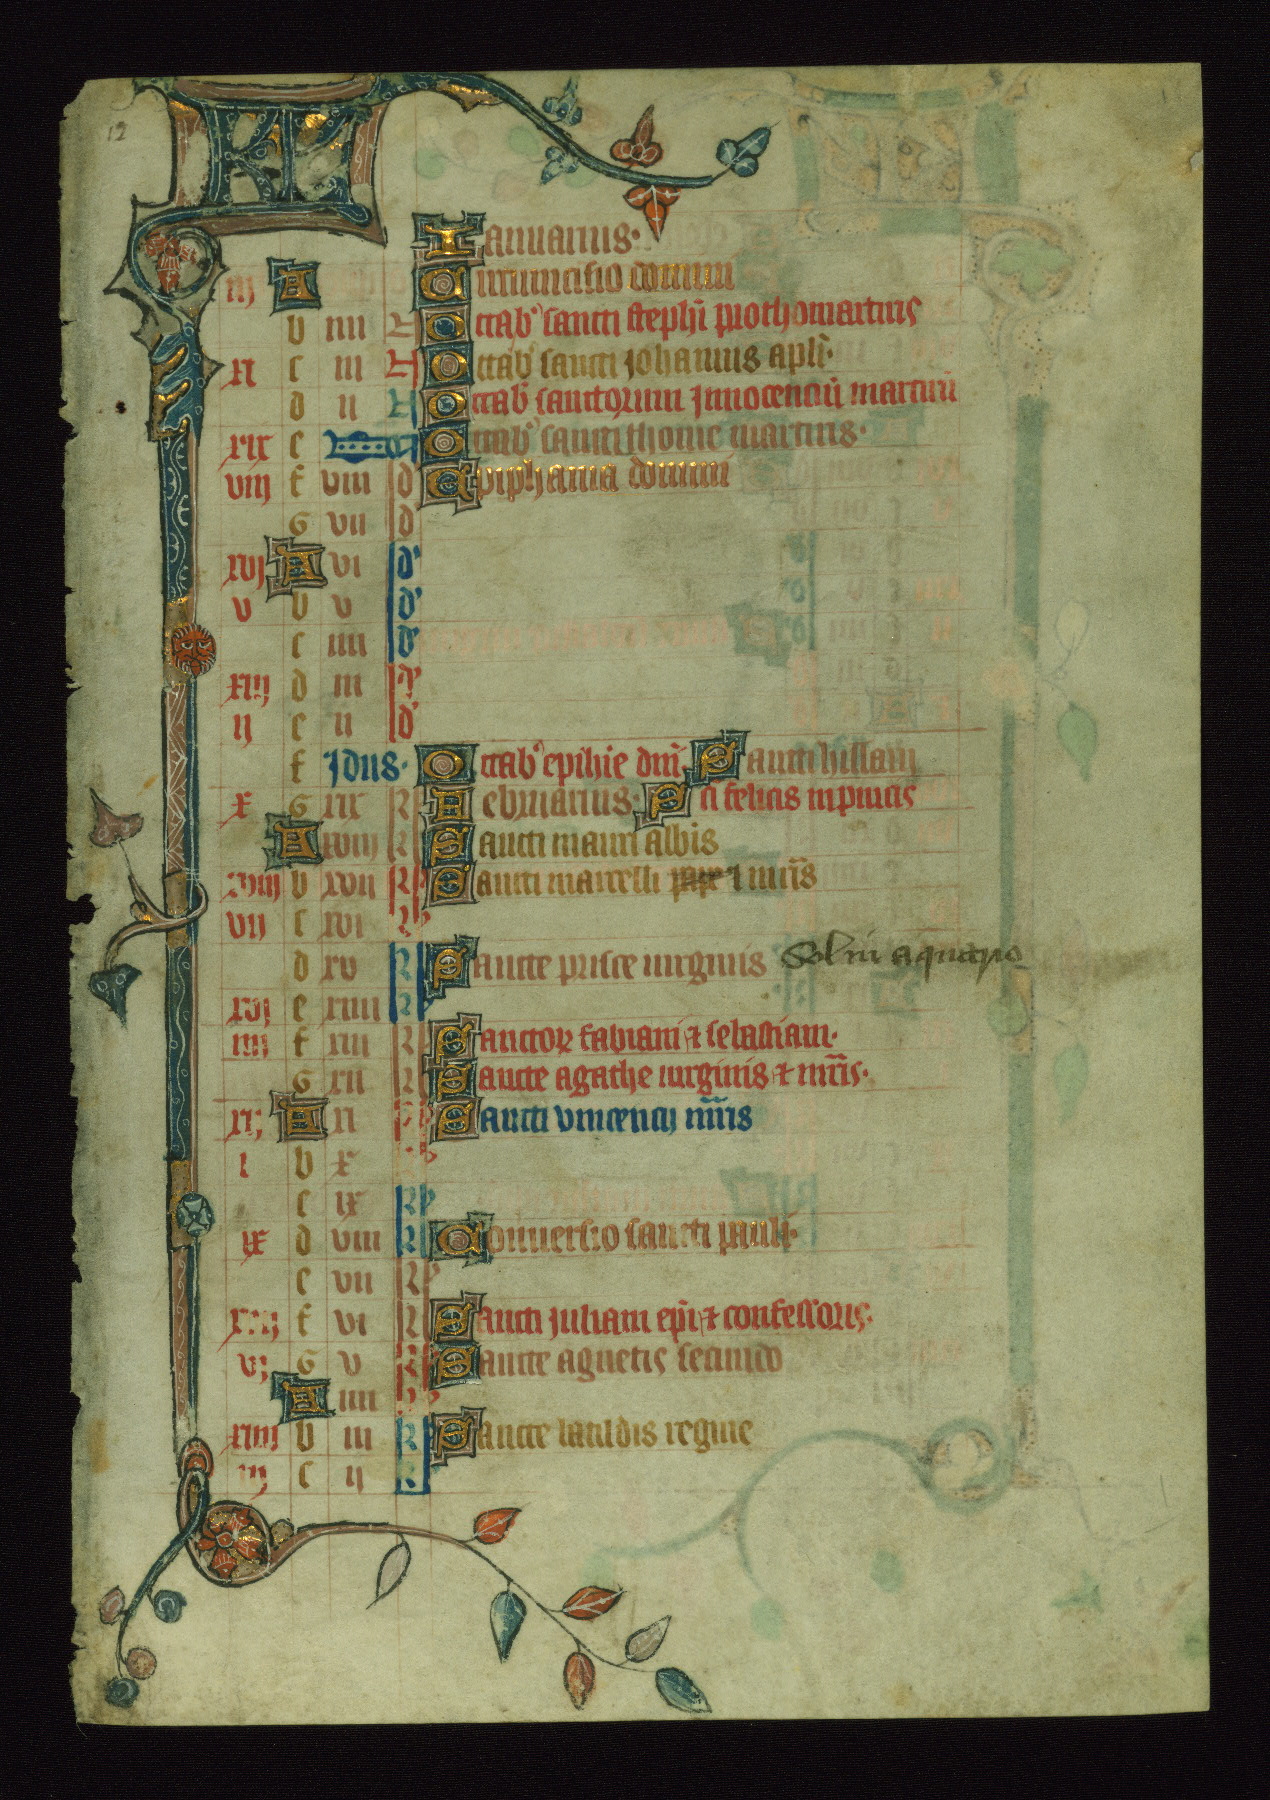 12
KL
Januarius.
iij A Circumcisio domini
b iiii N Octab' sancti steph̄i prothomartiris
xi c iii N Octab' sancti Johannis apl̄i.
d ii N Octab' sanctorum Innocenciū martirū
xix e N Octab' sancti thome martiris.
viij f viii Id Epiphania domini
G vii Id
xvj A vi Id'
v b v Id'
c iiii Id'
xiij d iii Id'
ij e ii Id
f Idus. Octab' epiphie dn̄i Sancti hillarii
x G xix Kl Februarius. Sc̄i felicis in pincis
A xviij Kl Sancti mauri abbis
xviij b xvii Kl Sancti marcelli pape & mr̄is
vij c xvi Kl
d xv Kl Sancte prisce uirginis Sol in aquario
xvj e xiiii Kl
iiij f xiii Kl Sanctor fabiani & sebastiani.
G xii Kl Sancte agathe uirginis & mr̄is.
xij A xi Kl Sancti vincencij mr̄is
i b x Kl
c ix Kl
ix d viii Kl Conuersio sancti pauli.
e vii Kl
f vi Kl Sancti Juliani ep̄i & confessoris.
vj G v Kl Sancte agnetis secundo
A iiii Kl
xiiij b iii Kl Sancte batildis regine
iij c ij Kl